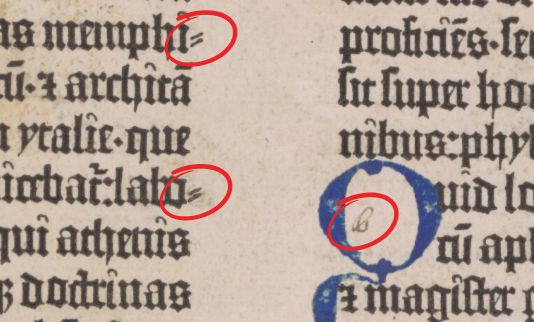 as memphi=
cū·⁊ architā
ytalie·que
icebat̄:labo=
qui athenis
ꝫ doctrinas
proficiēs·se
sit super ho
nibus:phyl
Quid lo
cū apl
⁊ magister g